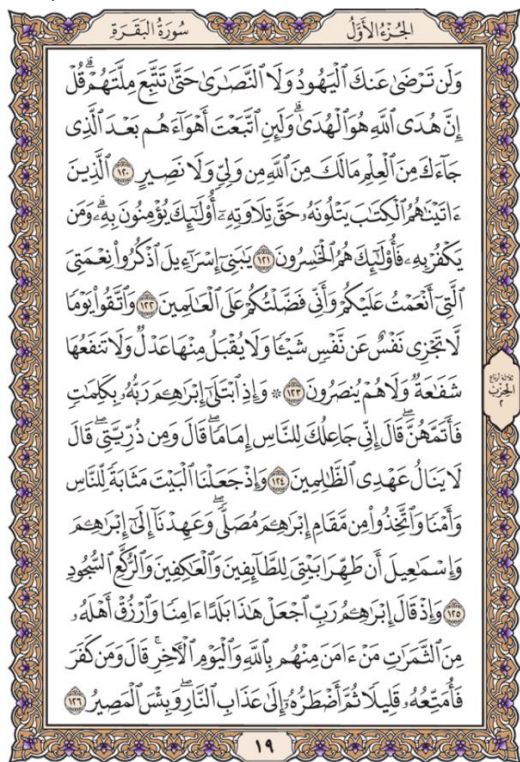 الجُزْءُ الأَوَّلُ
سُورَةُ البَقَرَةِ
وَلَن تَرْضَىٰ عَنكَ ٱلْيَهُودُ وَلَا ٱلنَّصَٰرَىٰ حَتَّىٰ تَتَّبِعَ مِلَّتَهُمْۗ قُلْ
إِنَّ هُدَى ٱللَّهِ هُوَ ٱلْهُدَىٰۗ وَلَئِنِ ٱتَّبَعْتَ أَهْوَآءَهُم بَعْدَ ٱلَّذِى
جَآءَكَ مِنَ ٱلْعِلْمِ مَا لَكَ مِنَ ٱللَّهِ مِن وَلِىٍّ وَلَا نَصِيرٍ ١٢٠ ٱلَّذِينَ
ءَاتَيْنَٰهُمُ ٱلْكِتَٰبَ يَتْلُونَهُۥ حَقَّ تِلَاوَتِهِۦٓ أُو۟لَٰٓئِكَ يُؤْمِنُونَ بِهِۦۗ وَمَن
يَكْفُرْ بِهِۦ فَأُو۟لَٰٓئِكَ هُمُ ٱلْخَٰسِرُونَ ١٢١ يَٰبَنِىٓ إِسْرَٰٓءِيلَ ٱذْكُرُوا۟ نِعْمَتِىَ
ٱلَّتِىٓ أَنْعَمْتُ عَلَيْكُمْ وَأَنِّى فَضَّلْتُكُمْ عَلَى ٱلْعَٰلَمِينَ ١٢٢ وَٱتَّقُوا۟ يَوْمًا
لَّا تَجْزِى نَفْسٌ عَن نَّفْسٍ شَيْـًٔا وَلَا يُقْبَلُ مِنْهَا عَدْلٌ وَلَا تَنفَعُهَا
شَفَٰعَةٌ وَلَا هُمْ يُنصَرُونَ ١٢٣ ۞ وَإِذِ ٱبْتَلَىٰٓ إِبْرَٰهِۦمَ رَبُّهُۥ بِكَلِمَٰتٍ
فَأَتَمَّهُنَّۖ قَالَ إِنِّى جَاعِلُكَ لِلنَّاسِ إِمَامًاۖ قَالَ وَمِن ذُرِّيَّتِىۖ قَالَ
لَا يَنَالُ عَهْدِى ٱلظَّٰلِمِينَ ١٢٤ وَإِذْ جَعَلْنَا ٱلْبَيْتَ مَثَابَةً لِّلنَّاسِ
وَأَمْنًا وَٱتَّخِذُوا۟ مِن مَّقَامِ إِبْرَٰهِۦمَ مُصَلًّىۖ وَعَهِدْنَآ إِلَىٰٓ إِبْرَٰهِۦمَ
وَإِسْمَٰعِيلَ أَن طَهِّرَا بَيْتِىَ لِلطَّآئِفِينَ وَٱلْعَٰكِفِينَ وَٱلرُّكَّعِ ٱلسُّجُودِ
١٢٥ وَإِذْ قَالَ إِبْرَٰهِۦمُ رَبِّ ٱجْعَلْ هَٰذَا بَلَدًا ءَامِنًا وَٱرْزُقْ أَهْلَهُۥ
مِنَ ٱلثَّمَرَٰتِ مَنْ ءَامَنَ مِنْهُم بِٱللَّهِ وَٱلْيَوْمِ ٱلْءَاخِرِۖ قَالَ وَمَن كَفَرَ
فَأُمَتِّعُهُۥ قَلِيلًا ثُمَّ أَضْطَرُّهُۥٓ إِلَىٰ عَذَابِ ٱلنَّارِۖ وَبِئْسَ ٱلْمَصِيرُ ١٢٦
ثلاثة أرباع
الحزب
٢
١٩